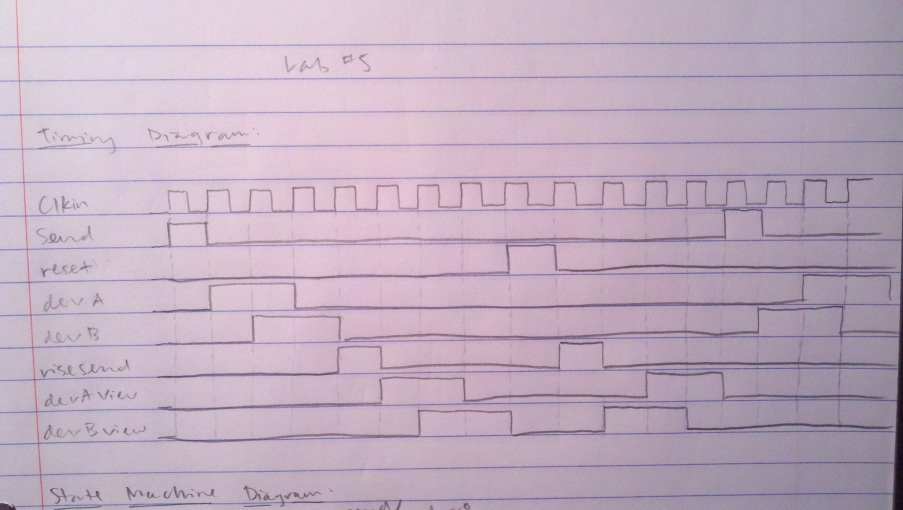 Lab #5
Timing Diagram:
Clkin
Send
reset
devA
devB
risesend
devAview
devBview
State Machine Diagram: